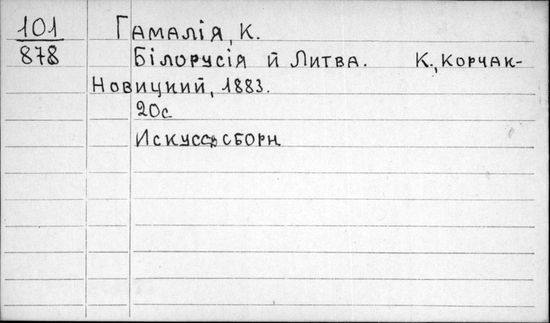 101 Гамалія, К.
878 Білорусія й Литва. К., Корчак-
Новицкий, 1883.
20с
сборн